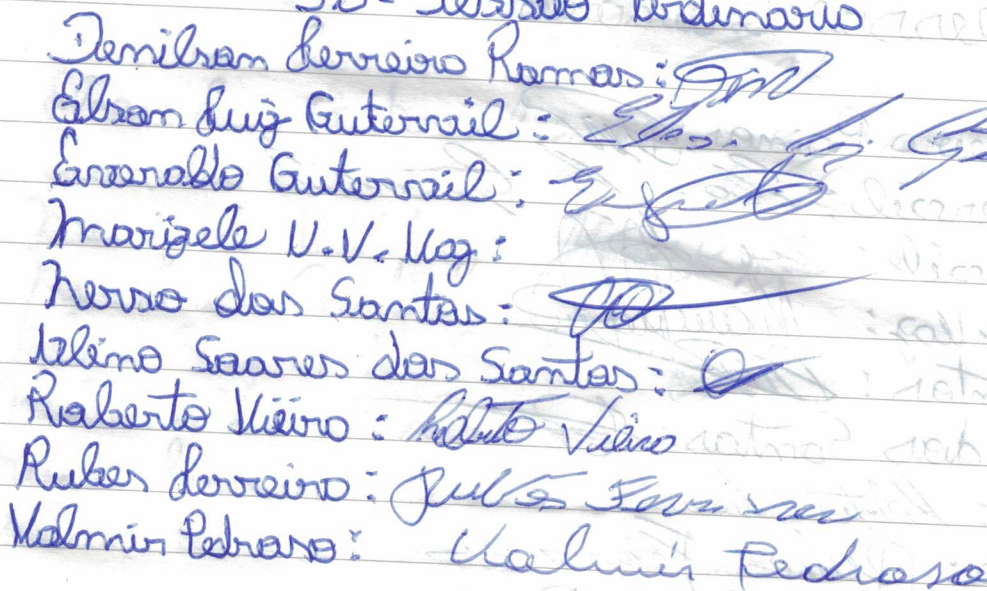 Sessão Ordinario
Denilson Ferreiro Ramos:
Elson Luiz Gutervil: Elson Luiz
Everaldo Gutervil:
Marizele V.V. Vaz:
Nerso dos Santos:
Soares dos Santos:
Roberto Vieiro: Roberto Vieiro
Rubes Ferreiro: Rubes Ferreira
Valmir Pedroso: Valmir Pedroso